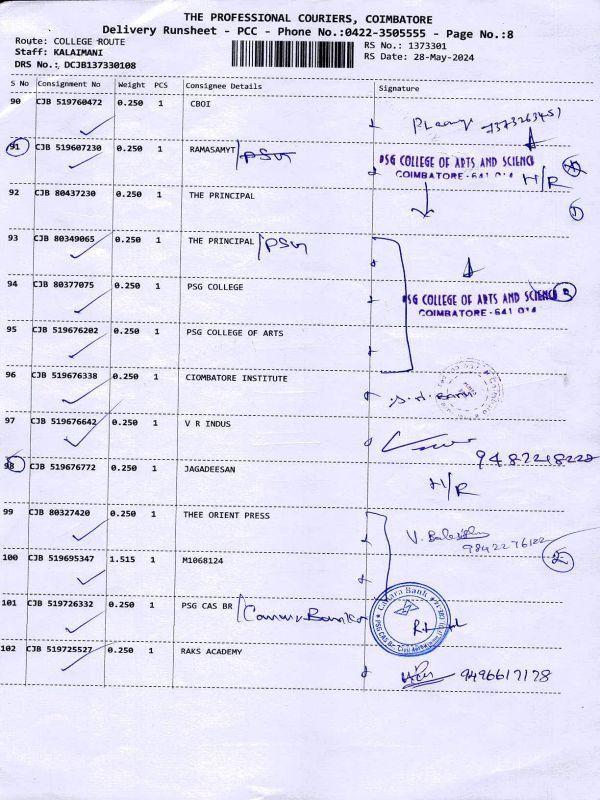 THE PROFESSIONAL COURIERS, COIMBATORE
Delivery Runsheet - PCC - Phone No.:0422-3505555 - Page No.:8
Route: COLLEGE ROUTE
Staff: KALAIMANI
DRS No.: DCJB137330108
RS No.: 1373301
RS Date: 28-May-2024
S No Consignment No Weight PCS Consignee Details Signature
90 CJB 519760472 0.250 1 CBOI
91 CJB 519607230 0.250 1 RAMASAMYT PSG
PSG COLLEGE OF ARTS AND SCIENCE
COIMBATORE - 641 014
H/R
92 CJB 80437230 0.250 1 THE PRINCIPAL
93 CJB 80349065 0.250 1 THE PRINCIPAL PSG
94 CJB 80377075 0.250 1 PSG COLLEGE
PSG COLLEGE OF ARTS AND SCIENCE
COIMBATORE - 641 014
95 CJB 519676202 0.250 1 PSG COLLEGE OF ARTS
96 CJB 519676338 0.250 1 CIOMBATORE INSTITUTE
97 CJB 519676642 0.250 1 V R INDUS
98 CJB 519676772 0.250 1 JAGADEESAN
9487218222
H/R
99 CJB 80327420 0.250 1 THEE ORIENT PRESS
9842276122
100 CJB 519695347 1.515 1 M1068124
101 CJB 519726332 0.250 1 PSG CAS BR
Canara Bank
102 CJB 519725527 0.250 1 RAKS ACADEMY
9496617178